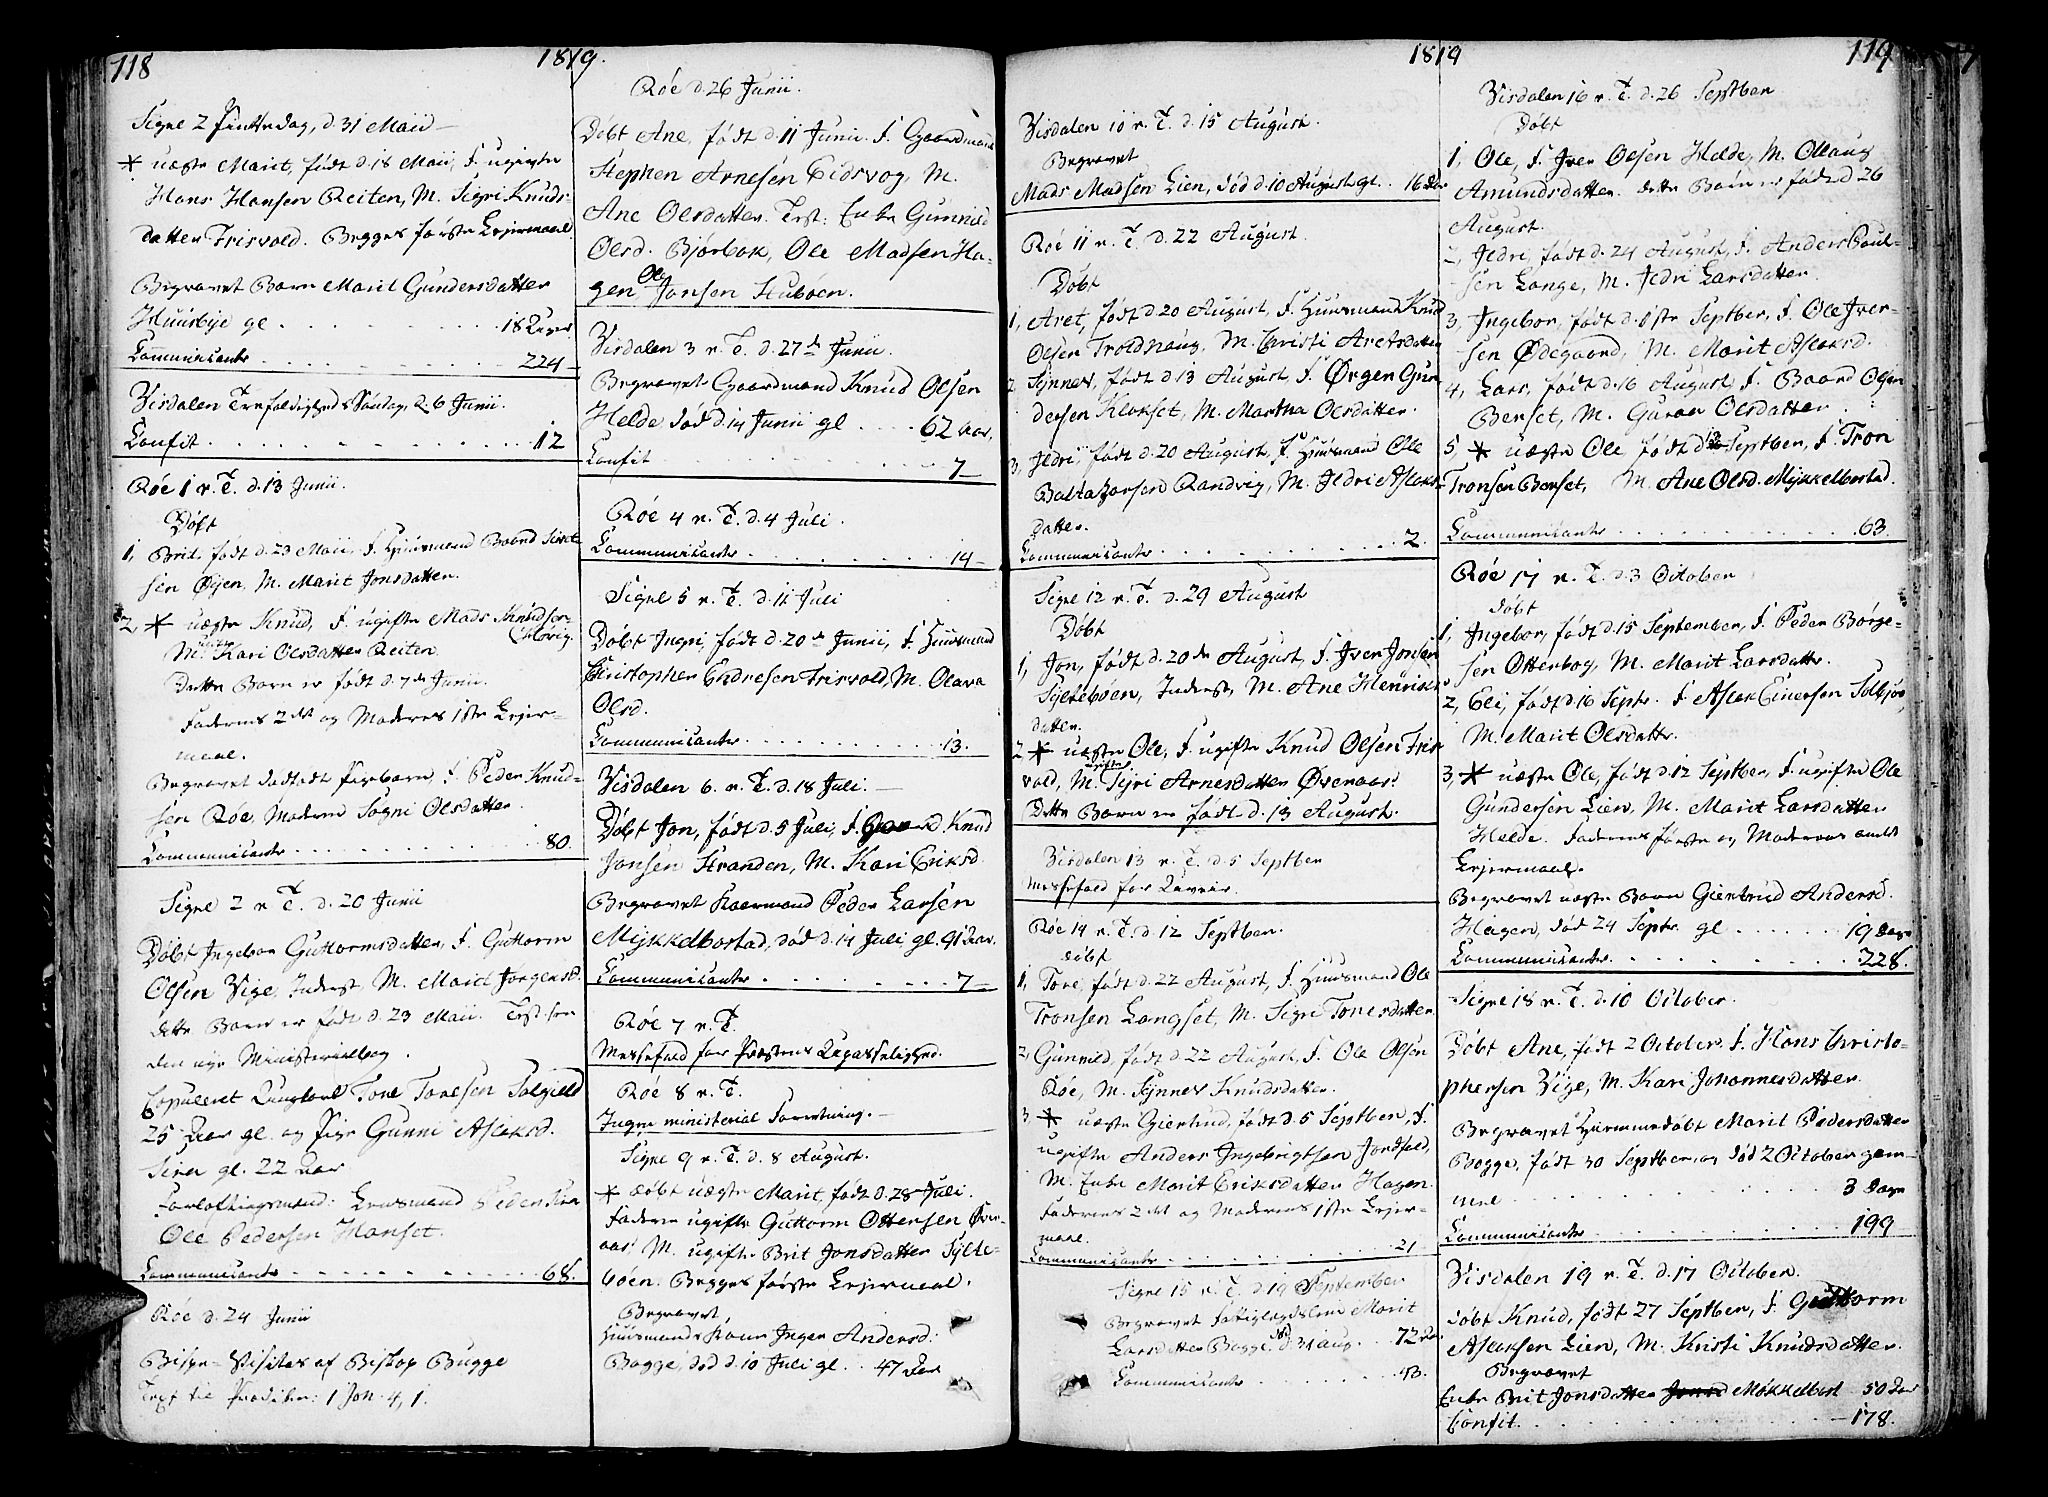 118
1819.
Signe 2 Pintsedag, d. 31 Maii
* uægte Marit, født d. 18 Maii, F. ugivte
Hans Hansen Reiten, M. Sigri Knuds-
datter Trisvold. Begges første Lejermaal.
Begravet Barn Marit Gundersdatter
Huusbye gl. 18 Uger
Communicanter 224
Visdalen Trefoldigheds Søndag, d. 6 Junii.
Confit. 12
Røe 1 p. T. d. 13 Junii.
Døbt
1, Brit, født d. 23 Maii, F. Huusmand Baard Siverts-
sen Øijen, M. Marit Jonsdatter.
2, * uægte Knud, F. ugifte Mads Knudsen
M. ugifte Kari Olsdatter Reiten.
Dette Barn er født d. 7de Junii.
Faderens 2det og Moderens 1ste Lejer-
maal.
Begravet dødfødt Pigebarn, F. Peder Knud-
sen Røe, Moderen Sogni Olsdatter.
Communicanter 80.
Signe 2 p. T. d. 20 Junii
Døbt Ingebor Guttormsdatter, F. Guttorm
Olsen Vige, Inderst, M. Marit Jørgensd.
dette Barn er født d. 23 Maii. Test. see
den nye Ministerialbog.
Copuleret Ungkarl Tore Toresen Solgield
25 Aar gl. og Pige Gunni Aslaksd.
Sira gl. 22 Aar
Forlovningsmænd: Lensmand Peder Sira
Ole Pedersen Hanset.
Communicanter 68.
Røe d. 24 Junii
Bispe-Visitas af Biskop Bugge
Text til Prædiken: 1 Joh. 4, 1.
Røe d. 26 Junii.
Døbt Ane, født d. 11 Junii. F. Gaardmand
Stephen Arnesen Eidsvog, M.
Ane Olsdatter. Test: Enke Gunnild
Olsd. Bjørbak, Ole Madsen Ha-
gen, Ole Jonsen Stubøen.
Visdalen 3 p. T. d. 27de Junii.
Begravet Gaardmand Knud Olsen
Helde, død d. 14 Junii gl. 62 Aar.
Confit. 7
Røe 4 p. T. d. 4 Juli.
Communicanter 14
Signe 5 p. T. d. 11 Juli
Døbt Ingri, født d. 20de Junii, F. Huusmand
Christopher Endresen Trisvold, M. Olava
Olsd.
Communicanter 13.
Visdalen 6. p. T. d. 18 Juli.
Døbt Jon, født d. 5 Juli, F. Knud
Jonsen Stranden, M. Kari Eriksd.
Begravet Kaarmand Peder Larsen
Mykkelbostad, død d. 14 Juli gl. 91 Aar.
Communicanter 7
Røe 7 p. T.
Messefald for Præstens Upasselighed.
Røe 8 p. T.
Ingen ministerial Forretning.
Signe 9 p. T. d. 8 August.
* døbt uægte Marit, født d. 28 Juli.
Faderen ugifte Guttorm Ottersen Øver-
aas. M. ugifte Brit Jonsdatter Sylte-
bøen. Begges første Lejermaal.
Begravet,
Huusmands Kone Inger Andersd:
Bogge, død d. 10 Juli gl. 47 Aar
1819
119
Visdalen 10 p. T. d. 15 August.
Begravet
Mads Madsen Lien, død d. 10 August gl. 16 Aar
Røe 11 p. T. d. 22 August.
Døbt
1, Aret, født d. 20 August, F. Huusmand Knud
Olsen Troldhaug, M. Christi Aretsdatter
2, Synnev, født d. 13 August, F. Ørgen Gun-
dersen Klokset, M. Martha Olsdatter.
3, Ildri, født d. 20 August, F. Huusmand Ole
Baltazarsen Randvig, M. Ildri Aslaks-
datter.
Communicanter 2.
Signe 12 p. T. d. 29 August
Døbt
1, Jon, født d. 20de August, F. Iver Jonsen
Syltebøen, Inderst, M. Ane Henriks-
datter.
2 * uægte Ole, F. ugifte Knud Olsen Tris-
vold, M. ugifte Syri Arnesdatter Øveraas.
Dette Barn er født d. 13 August.
Visdalen 13 p. T. d. 5 Septber
Messefald for Uveir.
Røe 14 p. T. d. 12 Septber.
døbt
1, Tore, født d. 22 August, F. Huusmand Ole
Tronsen Langset, M. Sigri Toresdatter
2, Gunnild, født d. 22 August, F. Ole Olsen
Røe, M. Synnev Knudsdatter.
3 * uægte Giertrud, født d. 5 Septber, F.
ugifte Anders Ingebrigtsen Jordfald,
M. Enke Marit Eriksdatter Hagen.
Faderens 2det og Moderens 1ste Lejer-
maal.
Communicanter 21
Signe 15 p. T. d. 19 September
Begravet Fattiglægdslem Marit
Larsdatter Bogge, død d. 31 aug. 72 Aar
Communicanter 43.
Visdalen 16 p. T. d. 26 Septber
Døbt
1, Ole, F. Iver Olsen Helde, M. Ollaug
Amundsdatter. dette Barn er født d. 26
August.
2, Ildri, født d. 24 August, F. Anders Poul-
sen Lange, M. Ildri Larsdatter.
3, Ingebor, født d. 1ste Septber, F. Ole Iver-
sen Ødegaard, M. Marit Aslaksd.
4, Lars, født d. 16 August, F. Baard Olsen
Berset, M. Guroe Olsdatter.
5, * uægte Ole født d. Septber, F. Tron
Tronsen Berset, M. Ane Olsd. Mykkelbostad.
Communicanter 63.
Røe 17 p. T. d. 3 October
døbt
1, Ingebor, født d. 15 September, F. Peder Børge-
sen Otterbog, M. Marit Larsdatter.
2, Eli, født d. 16 Septr. F. Aslak Einersen Solbjør,
M. Marit Olsdatter.
3, * uægte Ole, født d. 12 Septber, F. ugifte Ole
Gundersen Lien, M. Marit Larsdatter
Helde. Faderens første og Moderens andet
Lejermaal.
Begravet uægte Barn Giertrud Andersd.
Hagen, død 24 Septr. gl. 19 Dage
Communicanter 228.
Signe 18 p. T. d. 10 October.
Døbt Ane, født 2 October, F. Hans Christo-
phersen Vige, M. Kari Johannesdatter.
Begravet hiemmedøbt Marit Pedersdatter
Bogge, født 30 Septber, og død 2 October gam-
mel 3 Dage
Communicanter 199
Visdalen 19 p. T. d. 17 October.
døbt Knud, født 27 Septber, F. Guttorm
Aslaksen Lien, M. Kristi Knudsdatter.
Begravet
Enke Brit Jonsdatter Møkkelbost 50 Aar
Confit. 178.